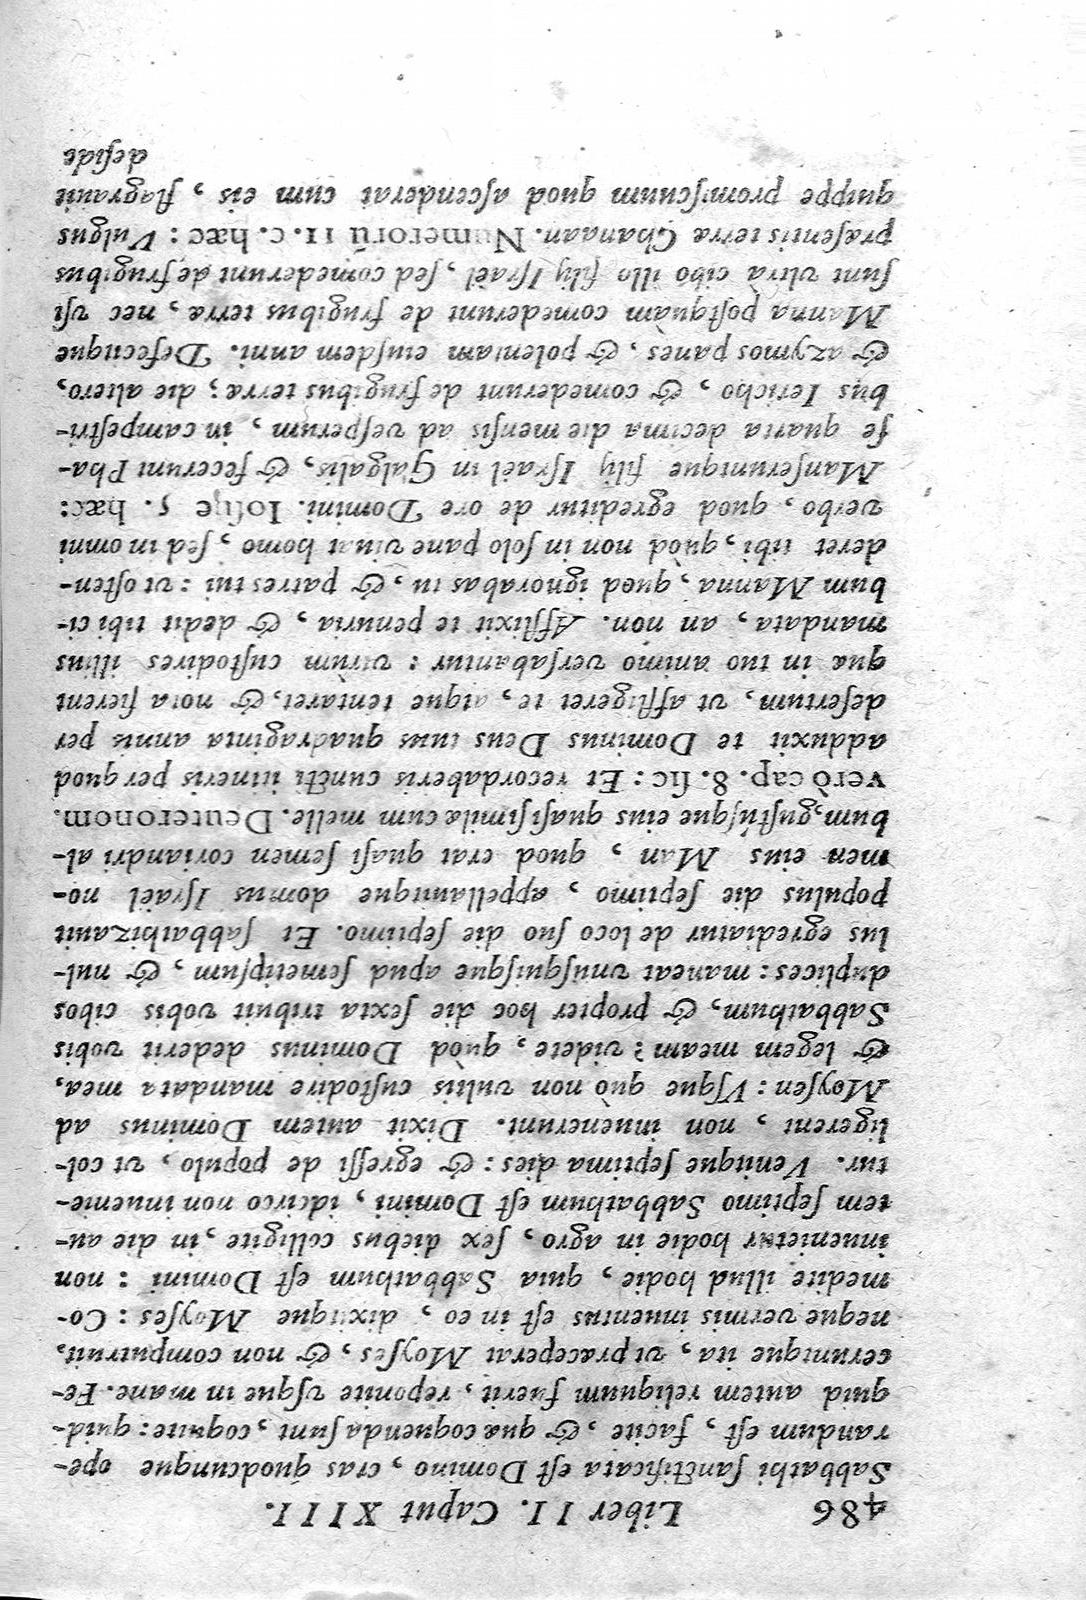 486 Liber II. Caput XIII.
Sabbathi ſanctificata eſt Domino, cras quodcunque ope-
randum eſt, facite, & quæ coquenda ſunt, coquite: quid-
quid autem reliquum fuerit, reponite vſque in mane. Fe-
ceruntque ita, vt præceperat Moyſes, & non computruit,
neque vermis inuentus eſt in eo, dixitque Moyſes: Co-
medite illud hodie, quia Sabbathum eſt Domini: non
inuenietur hodie in agro, ſex diebus colligite, in die au-
tem ſeptimo Sabbathum eſt Domini, idcirco non inuenie-
tur. Venitque ſeptima dies: & egreſſi de populo, vt col-
ligerent, non inuenerunt. Dixit autem Dominus ad
Moyſen: Vſque quò non vultis cuſtodire mandata mea,
& legem meam? videte, quòd Dominus dederit vobis
Sabbathum, & propter hoc die ſexta tribuit vobis cibos
duplices: maneat vnuſquiſque apud ſemetipſum, & nul-
lus egrediatur de loco ſuo die ſeptimo. Et ſabbathizauit
populus die ſeptimo, appellauitque domus Iſraël no-
men eius Man, quod erat quaſi ſemen coriandri al-
bum, guſtúſque eius quaſi ſimilæ cum melle. Deuteronom.
verò cap. 8. ſic: Et recordaberis cuncti itineris per quod
adduxit te Dominus Deus tuus quadraginta annis per
deſertum, vt affligeret te, atque tentaret, & nota fierent
quæ in tuo animo verſabantur: vtrum cuſtodires illius
mandata, an non. Afflixit te penuria, & dedit tibi ci-
bum Manna, quod ignorabas tu, & patres tui: vt oſten-
deret tibi, quòd non in ſolo pane viuat homo, ſed in omni
verbo, quod egreditur de ore Domini. Ioſuę 5. hæc:
Manſeruntque filij Iſraël in Galgalis, & fecerunt Pha-
ſe quarta decima die menſis ad veſperum, in campeſtri-
bus Iericho, & comederunt de frugibus terræ; die altero,
& azymos panes, & polentam eiuſdem anni. Defecitque
Manna poſtquàm comederunt de frugibus terræ, nec vſi
ſunt vltrà cibo illo filij Iſraël, ſed comederunt de frugibus
præſentis terræ Chanaan. Numerorũ 11. c. hæc: Vulgus
quippe promiſcuum quod aſcenderat cum eis, flagrauit
deſide